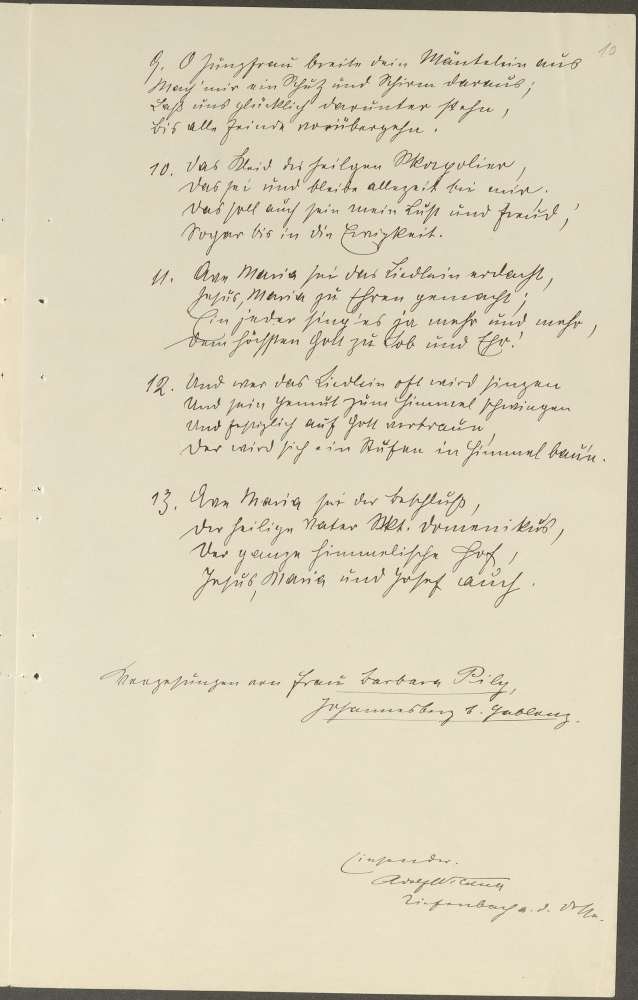 10
9. O Jungfrau breite dein Mäntelein aus
Mach mir ein Schutz und Schirm daraus;
Laß uns glücklich darunter stehn,
Bis alle Feinde vorübergehn.
10. Das Kleid des heilgen Skapolier,
Das sei und bleibe allezeit bei mir.
Das soll auch sein mein Lust und Freud,
Sogar bis in die Ewigkeit.
11. Ave Maria sei das Liedlein erdacht,
Jesus, Maria zu Ehren gemacht;
Ein jeder sing' es ja mehr und mehr,
Dem höchsten Gott zu Lob und Ehr!
12. Und wer das Liedlein oft wird singen
Und sein Gemüt zum Himmel schwingen
Und auf Gott vertraun
Der wird sich ein in Himmel baun.
13. Ave Maria sei der Beschluß,
Der heilige Vater Skt. Domenikus,
Der ganze himmelische Hof,
Jesus, Maria und Josef auch.
Vorgesungen von Frau Barbara Pilz,
Johannesberg b. Gablonz.
Einsender:
Adolf
Tiefenbach a. d. Desse.